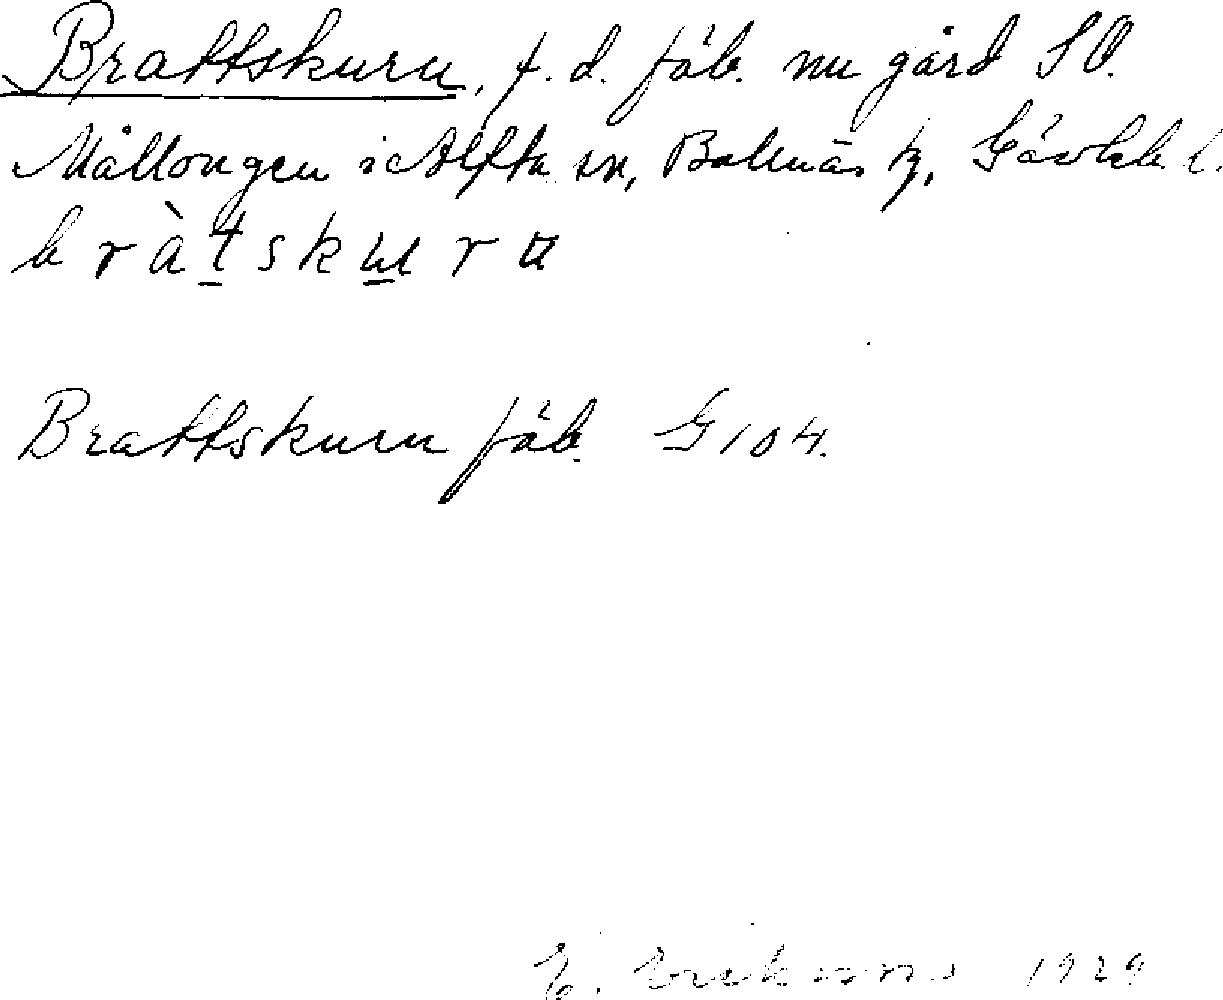 Brattskuru, f. d. fäb. nu gård SO.
Mållongen i Alfta sn, Bollnäs tg, Gävleb. l.
b r à t s k ɯ r u
Brattskuru fäb. G 104.
E. Eriksson 1929